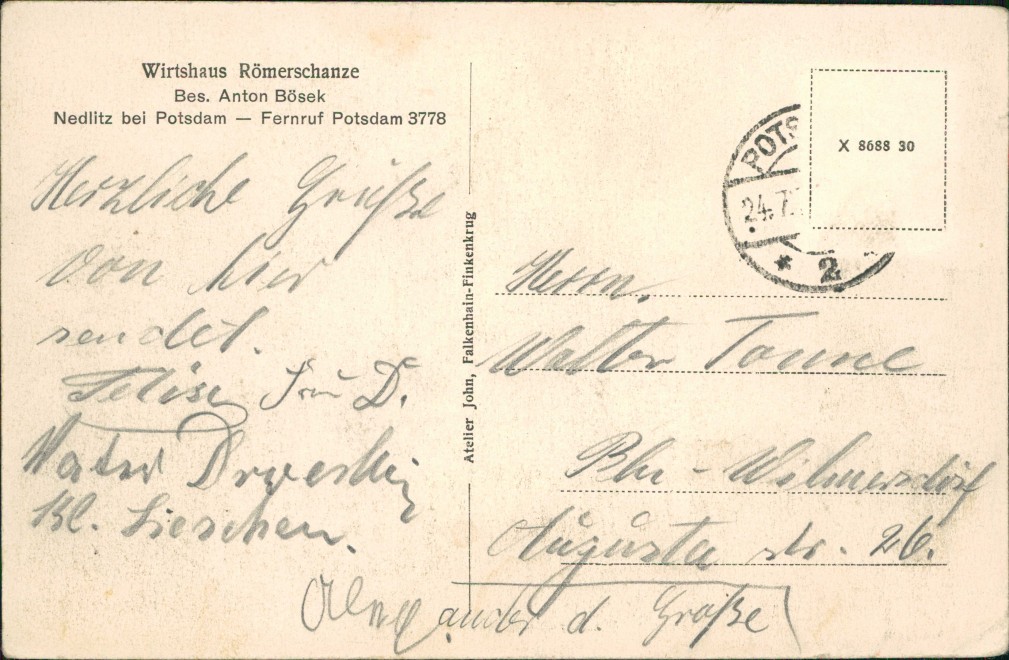 Wirtshaus Römerschanze
Bes. Anton Bösek
Nedlitz bei Potsdam — Fernruf Potsdam 3778
Herzliche Grüße
von hier
sendet.
Frau D.
Vater
Kl. Lieschen.
Alexander d. Große
Atelier John, Falkenhain-Finkenkrug
POTS
24.7.
* 2
X 8688 30
Herrn.
Walter Tonne
Bln - Wilmersdorf
Augusta str. 26.